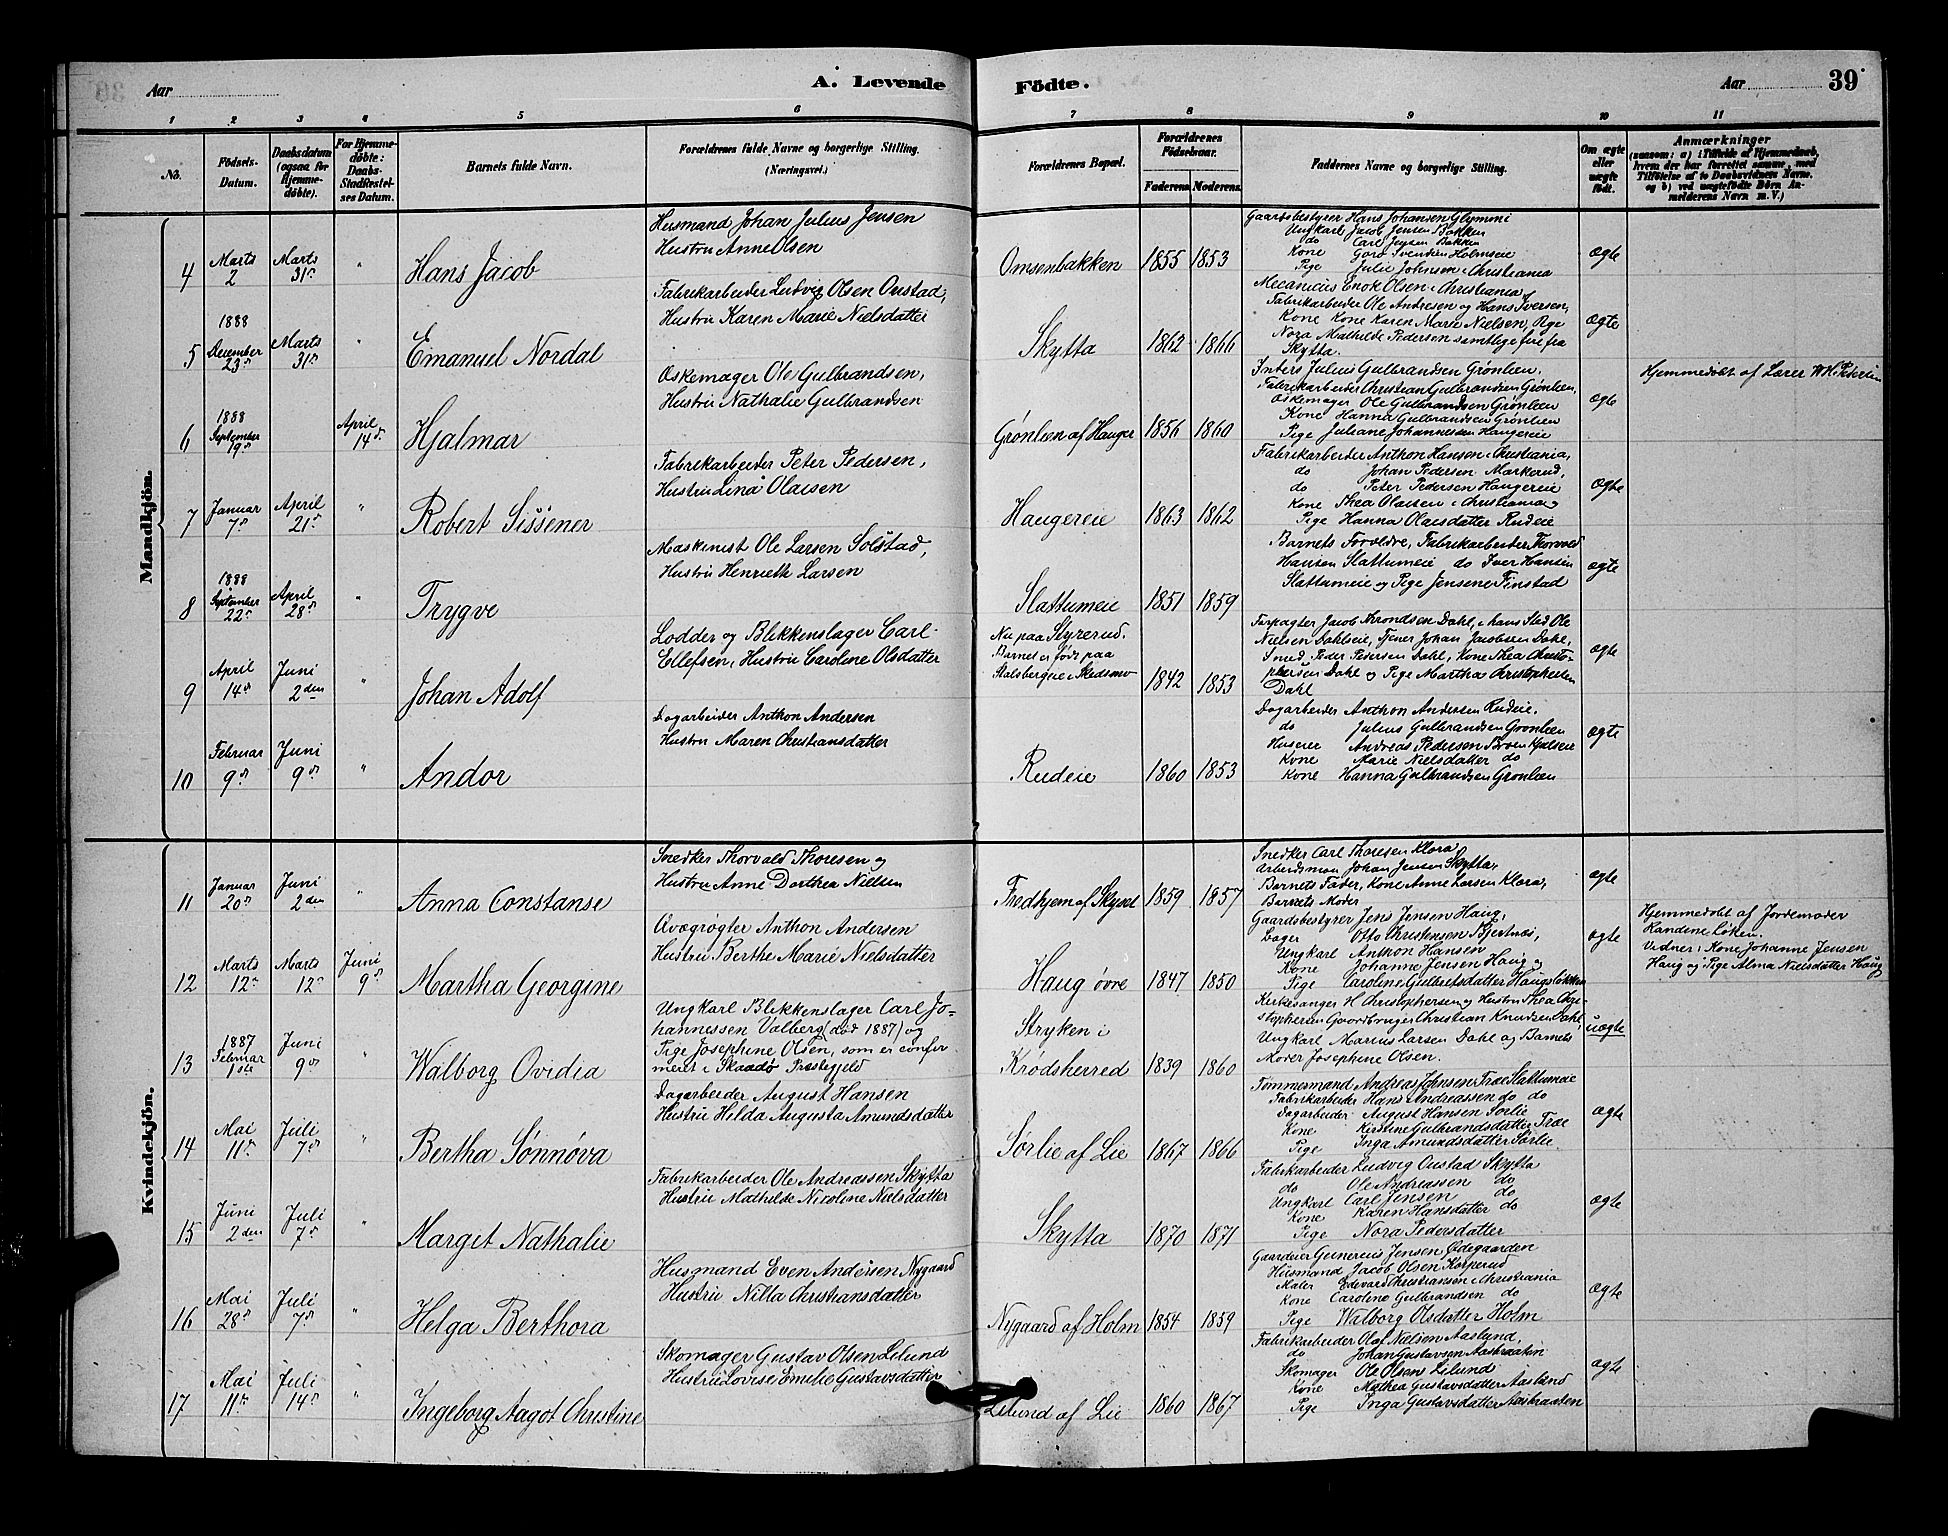 Aar
A. Levende
Födte.
Aar
39
1 2 3 4 5 6 7 8 9 10 11
No.
Födsels-
Datum.
Daabsdatum
(ogsaa for
Hjemme-
döbte).
For Hjemme-
döbte:
Daabs-
Stadfæstel-
ses Datum.
Barnets fulde Navn.
Forældrenes fulde Navne og borgerlige Stilling.
(Næringsvei.)
Forældrenes Bopæl.
Forældrenes
Födselsaar.
Faderens. Moderens.
Faddernes Navne og borgerlige Stilling.
Om ægte
eller
uægte
födt.
Anmærkninger
(saasom: a) i Tilfælde af Hjemmedaab,
hvem der har forrettet samme, med
Tilföielse af to Daabsvidners Navne,
og b) ved uægtefödte Börn An-
melderens Navn m. V.)
Mandkjön.
4
Marts
2
Marts
31te
"
Hans Jacob
Husmand Johan Julius Jensen
Hustru Anne Olsen
Omsenbakken
1855 1853
Gaardsbestyrer Hans Johansen Glymmi
Ungkarl Jacob Jensen Bakken
do Carl Jensen Bakken
Kone Goro Svendsen Holmseie
Pige Julie Johnsen, Christiania
ægte
5
1888
December
23de
Marts
31te
"
Emanuel Nordal
Fabrikarbeider Ludvig Olsen Onstad,
Hustru Karen Marie Nielsdatter
Skytta
1862 1866
Mecanicus Enok Olsen, Christiania,
Fabrikarbeider Ole Andresen og Hans Iversen,
Kone Kone Karen Marie Nielsen, Pige
Nora Mathilde Pedersen samtlige fire fra
Skytta.
ægte
6
1888
September
19de
April
14de
Hjalmar
Øskemager Ole Gulbrandsen,
Hustru Nathalie Gulbrandsen
Grønleen af Hauger
1856 1860
Inders Julius Gulbrandsen Grønleen,
Fabrikarbeider Christian Gulbrandsen Grønleen,
Øskemager Ole Gulbrandsen Grønleen
Kone Hanna Gulbrandsen Grønleen
Pige Juliane Johannesen Haugereie
ægte
Hjemmedøbt af Lærer W.H. Pedersen
7
Januar
7de
April
21de
"
Robert Sissener
Fabrikarbeider Peter Pedersen,
Hustru Lina Olaisen
Haugereie
1863 1862
Fabrikarbeider Anthon Hansen, Christiania,
do Johan Pedersen Markerud,
do Peter Pedersen Haugereie
Kone Thea Olaisen, Christiania
Pige Hanna Olausdatter Rudeie
ægte
8
1888
September
22de
April
28de
"
Trygve
Maskinist Ole Larsen Solstad,
Hustru Henrieth Larsen
Slattumeie
1851 1859
Barnets Forældre, Fabrikarbeider Thorvald
Hansen Slattumeie do Iver Hansen
Slattumeie og Pige Jensene Finstad
ægte
9
April
14de
Juni
2den
"
Johan Adolf
Lodder og Blikkenslager Carl
Ellefsen, Hustru Caroline Olsdatter
Nu paa Styrerud.
Barnet er født paa
Stalsbergeie i Skedsmo
1842 1853
Forpagter Jacob Throndsen Dahl, i hans Sted Ole
Nielsen Dahleie, Tjener Johan Jacobsen Dahl,
Smed Peder Pedersen Dahl, Kone Thea Christo-
phersen Dahl og Pige Martha Christophersen
Dahl
ægte
10
Februar
9de
Juni
9de
"
Andor
Dagarbeider Anthon Andersen
Hustru Maren Christiansdatter
Rudeie
1860 1853
Dagarbeider Anthon Andersen Rudeie.
do Julius Gulbrandsen Grønleen
Huseier Andreas Pedersen Broen Kjulseie
Kone Marie Nielsdatter do
Kone Hanna Gulbrandsen Grønleen
ægte
Kvindekjön.
11
Januar
20de
Juni
2den
"
Anna Constanse
Snedker Thorvald Thoresen og
Hustru Anne Dorthea Nielsen
Fredhjem af Skyset
1859 1857
Snedker Carl Thoresen Klora,
Arbeidsman Johan Jensen Skytta,
Barnets Fader, Kone Anne Larsen Klora,
Barnets Moder
ægte
12
Marts
12te
Marts
12te
Juni
9de
Martha Georgine
Qvægrøgter Anthon Andersen
Hustru Berthe Marie Nielsdatter
Haug øvre
1847 1850
Gaardsbestyrer Jens Jensen Haug,
Bager Otto Christensen Bjertnæs,
Ungkarl Anthon Hansen
Kone Johanne Jensen Haug og
Pige Caroline Gulbrandsdatter Haugsløkken
ægte
Hjemmedøbt af Jordemoder
Randene Løken.
Vidner: Kone Johanne Jensen
Haug og Pige Alma Nielsdatter Haug
13
1887
Februar
1ste
Juni
9de
"
Walborg Ovidia
Ungkarl Blikkenslager Carl Jo-
hannessen Valberg (død 1887) og
Pige Josephine Olsen, som er confir
meret i Skaadø Præstegjeld
Stryken i
Krødsherred
1839 1860
Kirkesanger H. Christophersen og Hustru Thea Chri-
stophersen Gaardbruger Christian Knudsen Dahl,
Ungkarl Marius Larsen Dahl og Barnets
Moder Josephine Olsen.
uægte
14
Mai
11te
Juli
7de
"
Bertha Sønnøva
Dagarbeider August Hansen
Hustru Hilda Augusta Amundsdatter
Sørlie af Lie
1867 1866
Tømmermand Andreas Johnsen Træ Slattumeie
Fabrikarbeider Hans Andreassen do do
Dagarbeider August Hansen Sørlie
Kone Kirstine Gulbrandsdatter Træ
Pige Inga Amundsdatter Sørlie
ægte
15
Juni
2den
Juli
7de
"
Margit Nathalie
Fabrikarbeider Ole Andreassen Skytta
Hustru Mathilde Nicoline Nielsdatter
Skytta
1870 1871
Fabrikarbeider Ludvig Onstad Skytta
do Ole Andreassen do
Ungkarl Carl Jensen do
Kone Karen Hansdatter do
Pige Nora Pedersdatter
ægte
16
Mai
28de
Juli
7de
"
Helga Berthora
Husmand Even Andersen Nygaard
Hustru Nilla Christiansdatter
Nygaard af Holm
1854 1859
Gaardeier Gunerius Jensen Ødegaarden
Husmand Jacob Olsen Korperud
Maler Edevard Christiansen, Christiania
Kone Caroline Gulbrandsen do
Pige Walborg Olsdatter Holm
ægte
17
Mai
11te
Juli
14de
"
Ingeborg Aagot Christine
Skomager Gustav Olsen Lilund
Hustru Lovise Emilie Gustavsdatter
Lilund af Lie
1860 1867
Fabrikarbeider Olaf Nielsen Aaslund,
do Johan Gustavsen Aasbraaten
Skomager Ole Olsen Lilund
Kone Mathea Gustavsdatter Aaslund
Pige Inga Gustavsdatter Aasbraaten
ægte